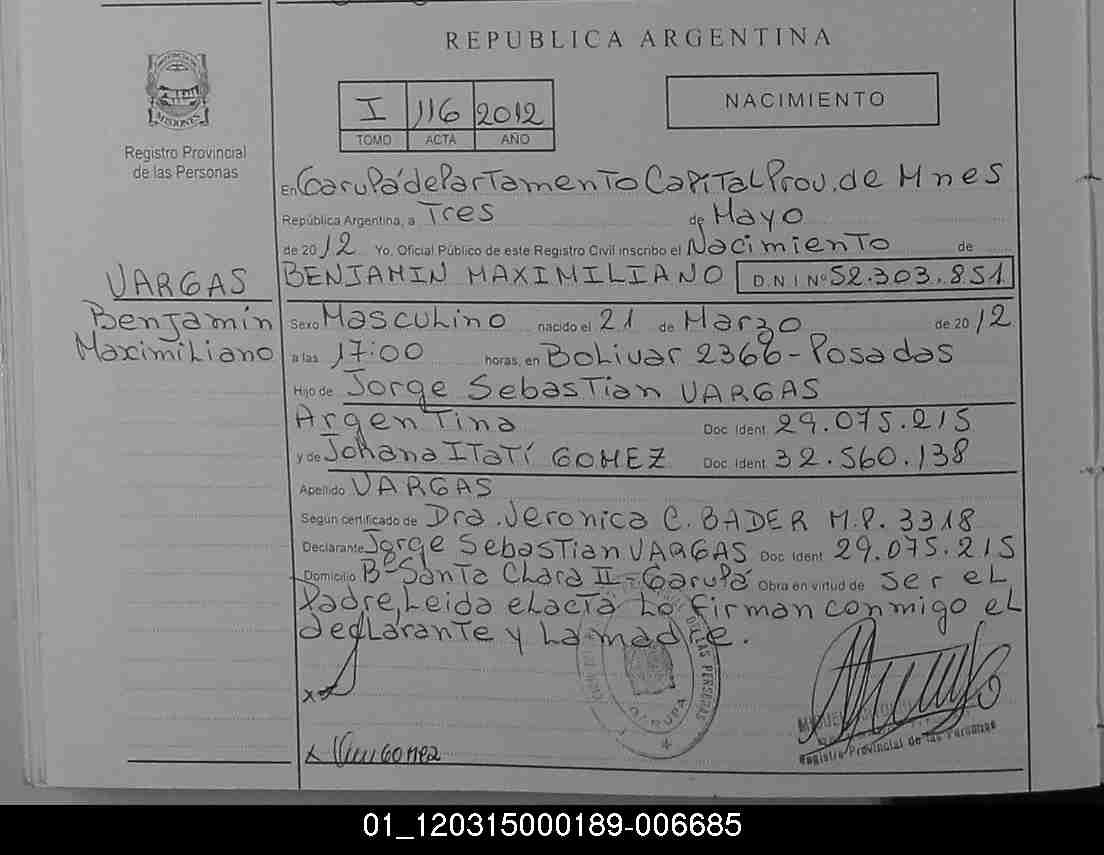 REPUBLICA ARGENTINA
MISIONES
Registro Provincial
de las Personas
I 116 2012
TOMO ACTA AÑO
NACIMIENTO
En Garupá departamento Capital Prov. de Mnes
República Argentina, a Tres de Mayo
de 2012 Yo, Oficial Público de este Registro Civil inscribo el Nacimiento de
BENJAMIN MAXIMILIANO D N I Nº 52.303.851
VARGAS
Benjamín
Maximiliano
Sexo Masculino nacido el 21 de Marzo de 2012
a las 17:00 horas, en Bolivar 2366 - Posadas
Hijo de Jorge Sebastian VARGAS
Argentina Doc Ident 29.075.215
y de Johana Itatí GOMEZ Doc Ident 32.560.138
Apellido VARGAS
Según certificado de Dra. Veronica C. BADER M.P. 3318
Declarante Jorge Sebastian VARGAS Doc Ident 29.075.215
Domicilio Bº Santa Clara II - Garupá Obra en virtud de ser el
Padre, Leida el acta lo firman conmigo el
declarante y la madre.
DE LAS PERSONAS
GARUPA
x
x Gomez
Registro Provincial de las Personas
01_120315000189-006685